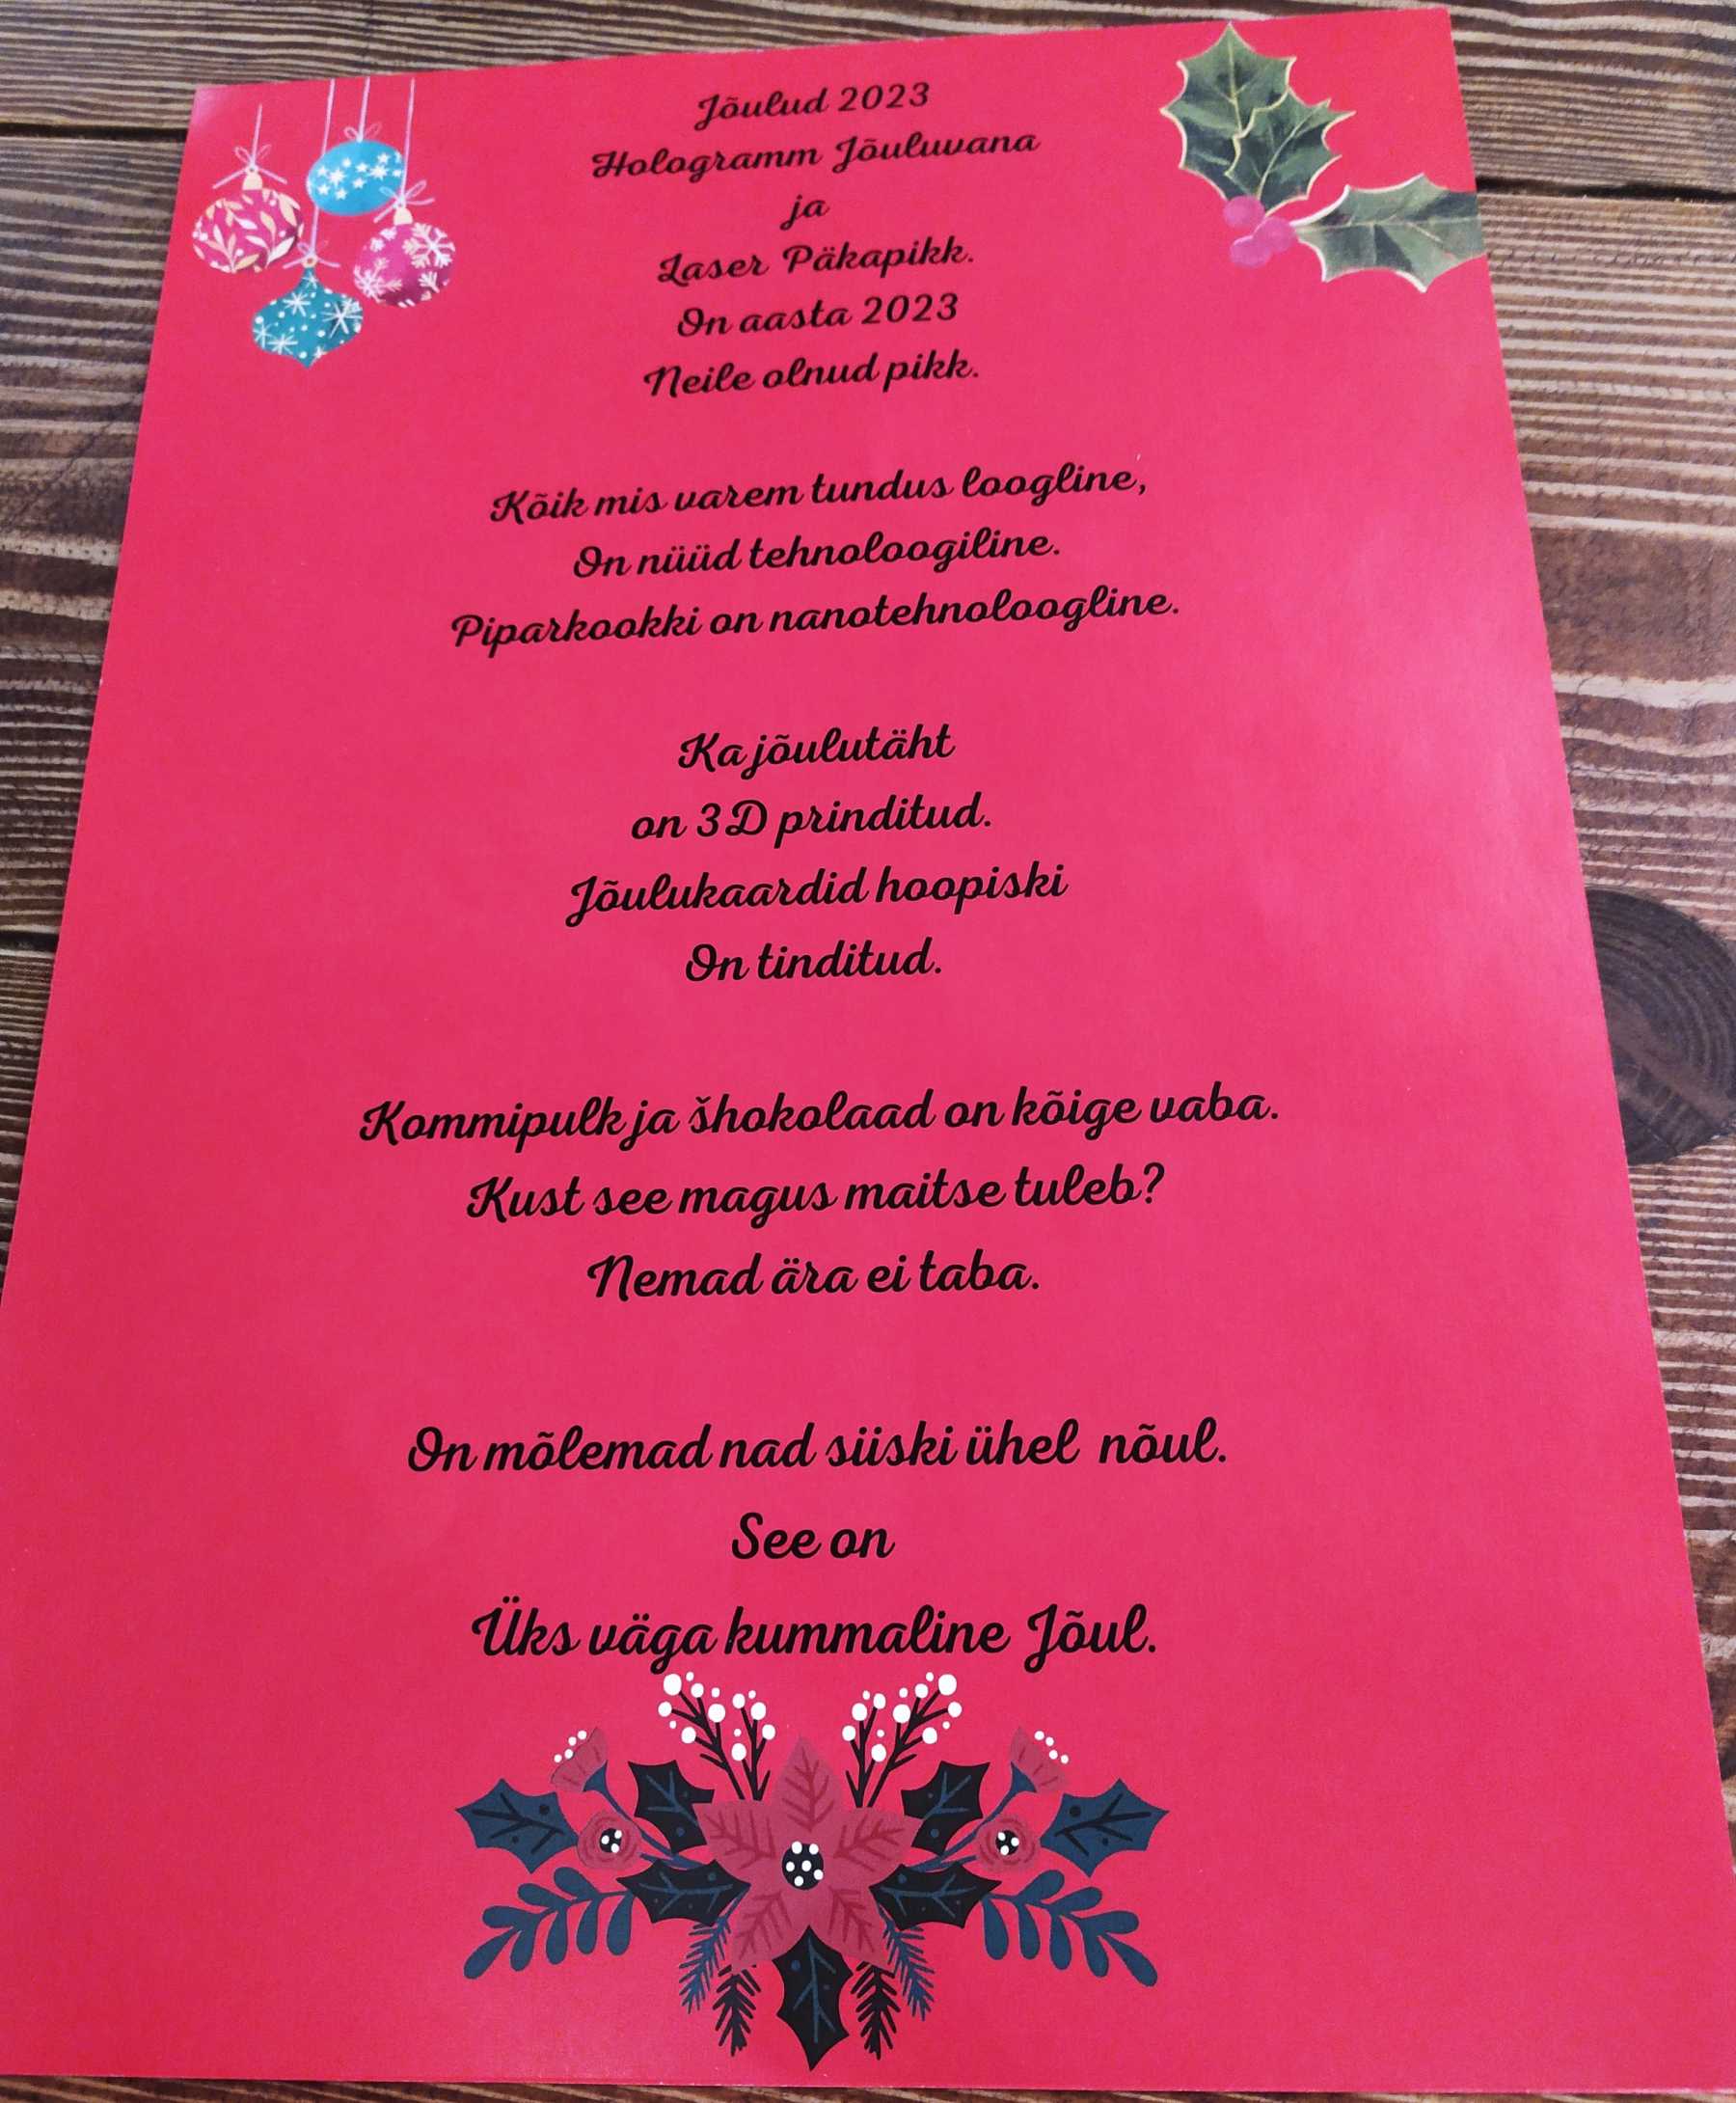 Jõulud 2023
Hologramm Jõuluvana
ja
Laser Päkapikk.
On aasta 2023
Neile olnud pikk.
Kõik mis varem tundus loogline,
On nüüd tehnoloogiline.
Piparkookki on nanotehnoloogline.
Ka jõulutäht
on 3D prinditud.
Jõulukaardid hoopiski
On tinditud.
Kommipulk ja šhokolaad on kõige vaba.
Kust see magus maitse tuleb?
Nemad ära ei taba.
On mõlemad nad siiski ühel nõul.
See on
Üks väga kummaline Jõul.